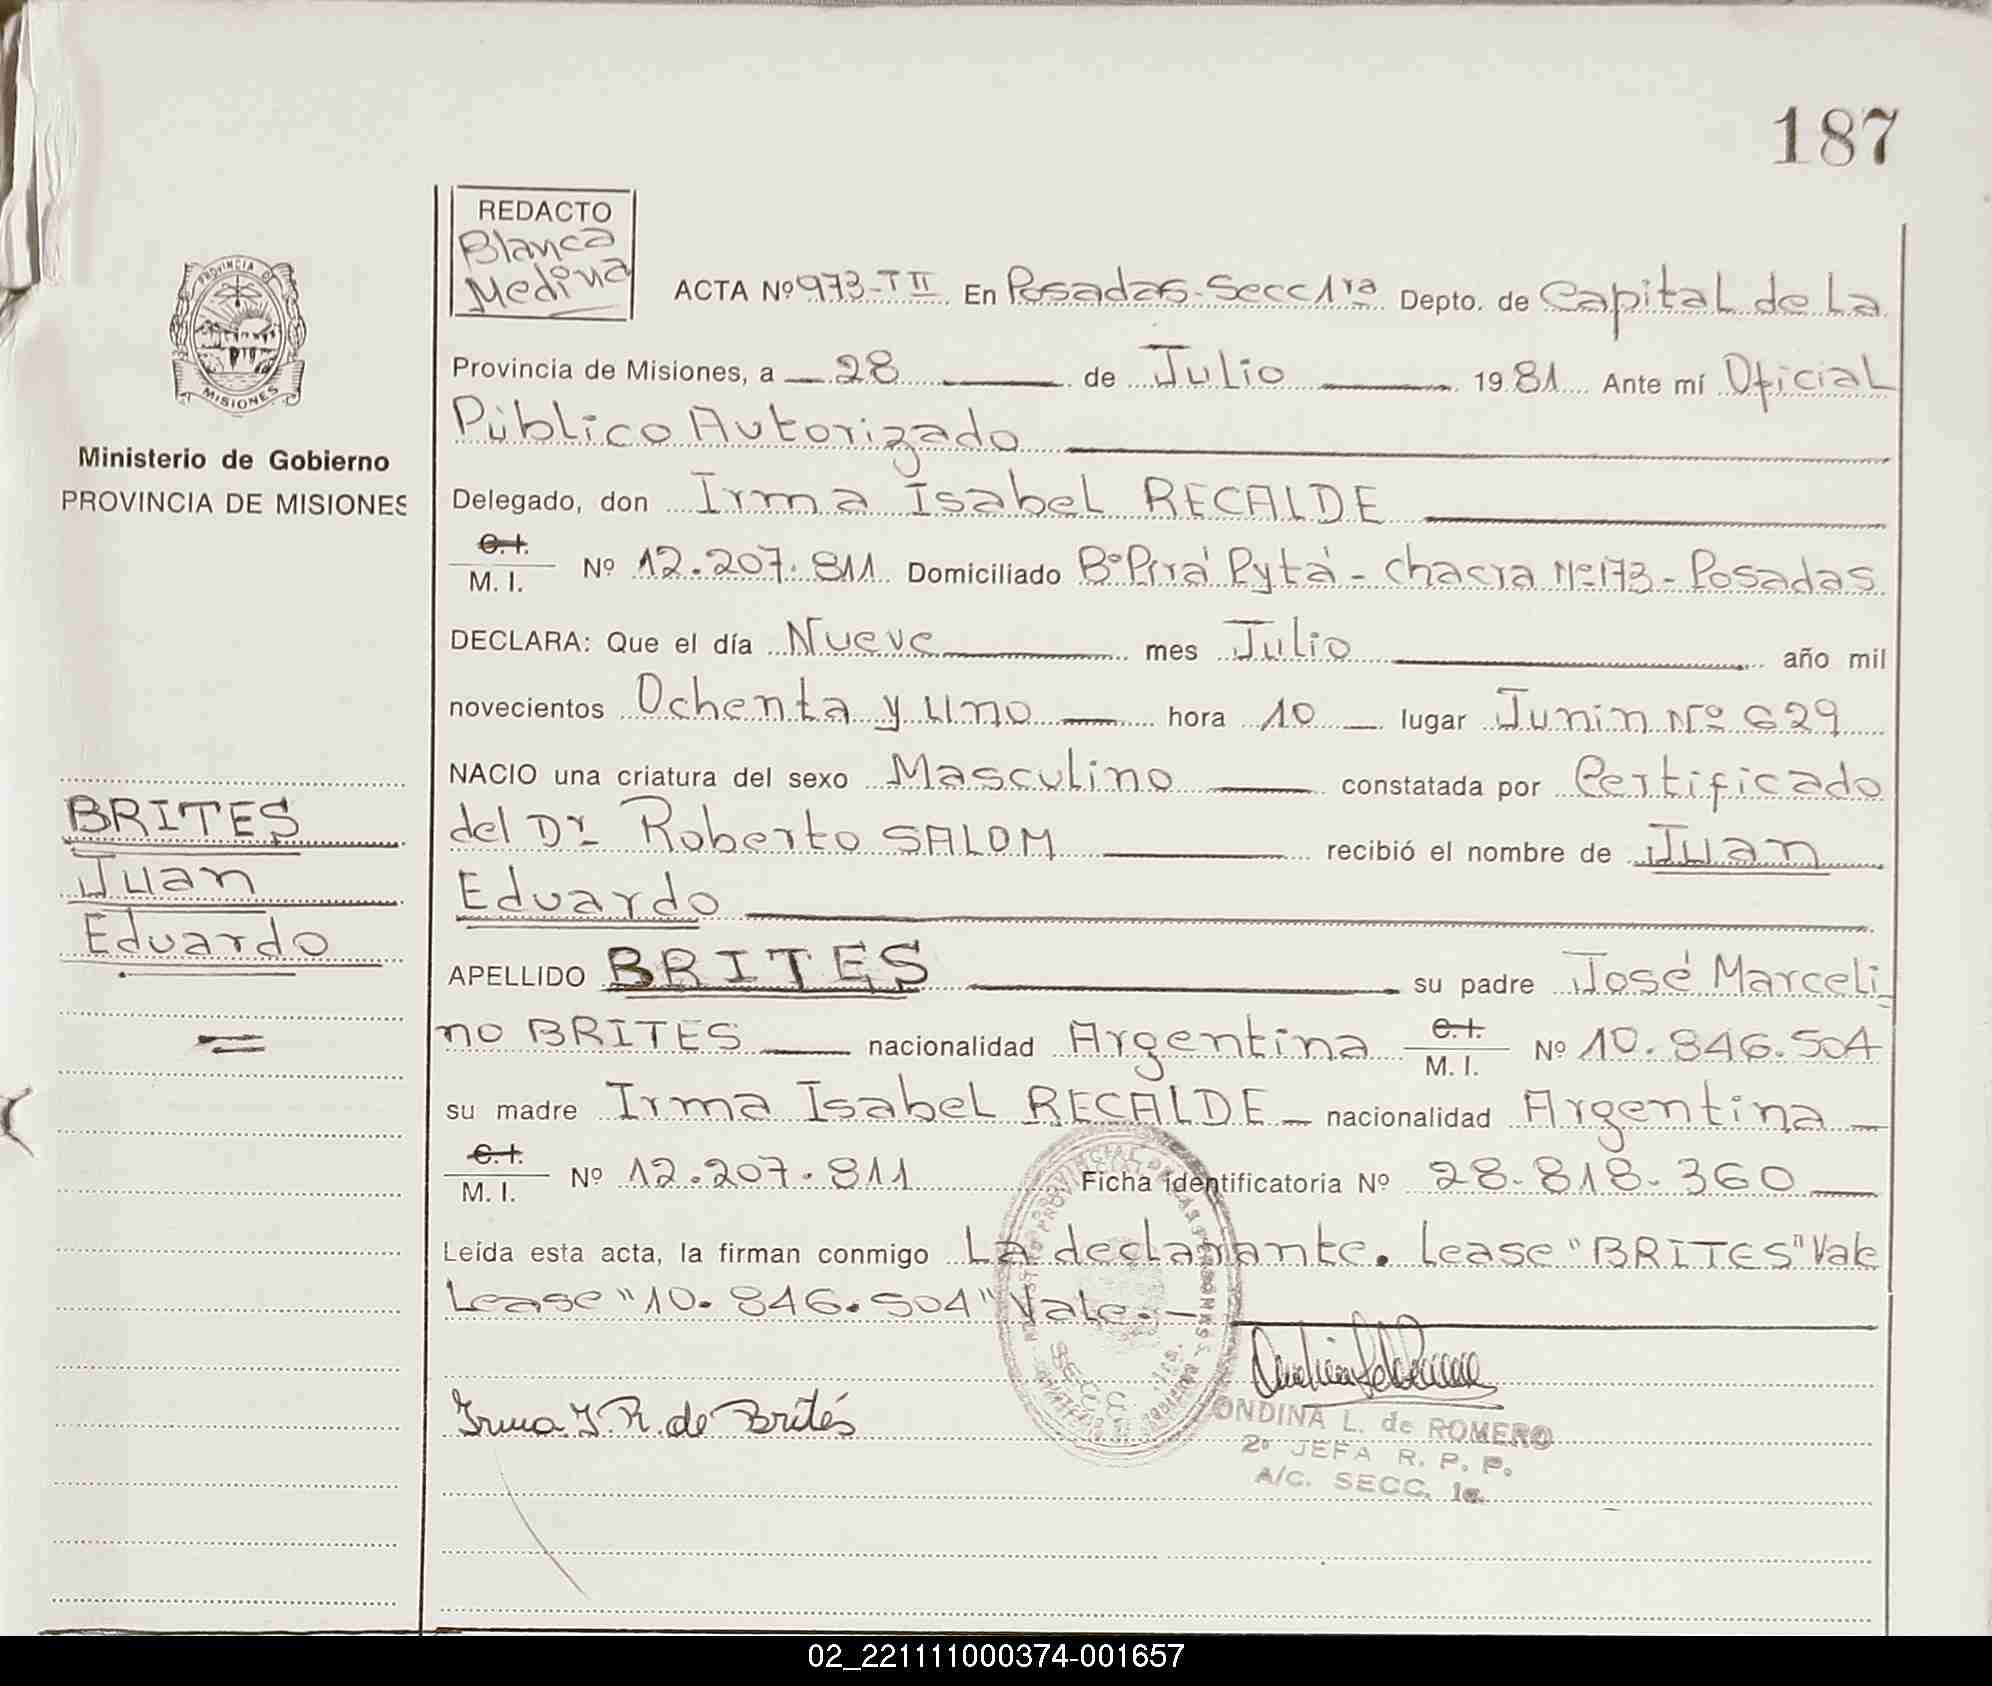 187
REDACTO
Blanca
Medina
PROVINCIA DE
MISIONES
Ministerio de Gobierno
PROVINCIA DE MISIONES
BRITES
Juan
Eduardo
ACTA Nº 973-T II En Posadas-Secc 1ra Depto. de Capital de La
Provincia de Misiones, a 28 de Julio 1981 Ante mí Oficial
Público Autorizado
Delegado, don Irma Isabel RECALDE
C.I.
M. I. Nº 12.207.811 Domiciliado Bº Pirá Pytá - chacra Nº 173 - Posadas
DECLARA: Que el día Nueve mes Julio año mil
novecientos Ochenta y uno hora 10 lugar Junin Nº 629
NACIO una criatura del sexo Masculino constatada por Certificado
del Dr Roberto SALOM recibió el nombre de Juan
Eduardo
APELLIDO BRITES su padre José Marceli
no BRITES nacionalidad Argentina C.I. M. I. Nº 10.846.504
su madre Irma Isabel RECALDE nacionalidad Argentina
C.I.
M. I. Nº 12.207.811 Ficha identificatoria Nº 28.818.360
Leída esta acta, la firman conmigo La declarante. Lease "BRITES" Vale
Lease "10.846.504" Vale.-
Irma I. R. de Brítes
ONDINA L. de ROMERO
2º JEFA R. P. P.
A/C. SECC. 1a.
02_221111000374-001657